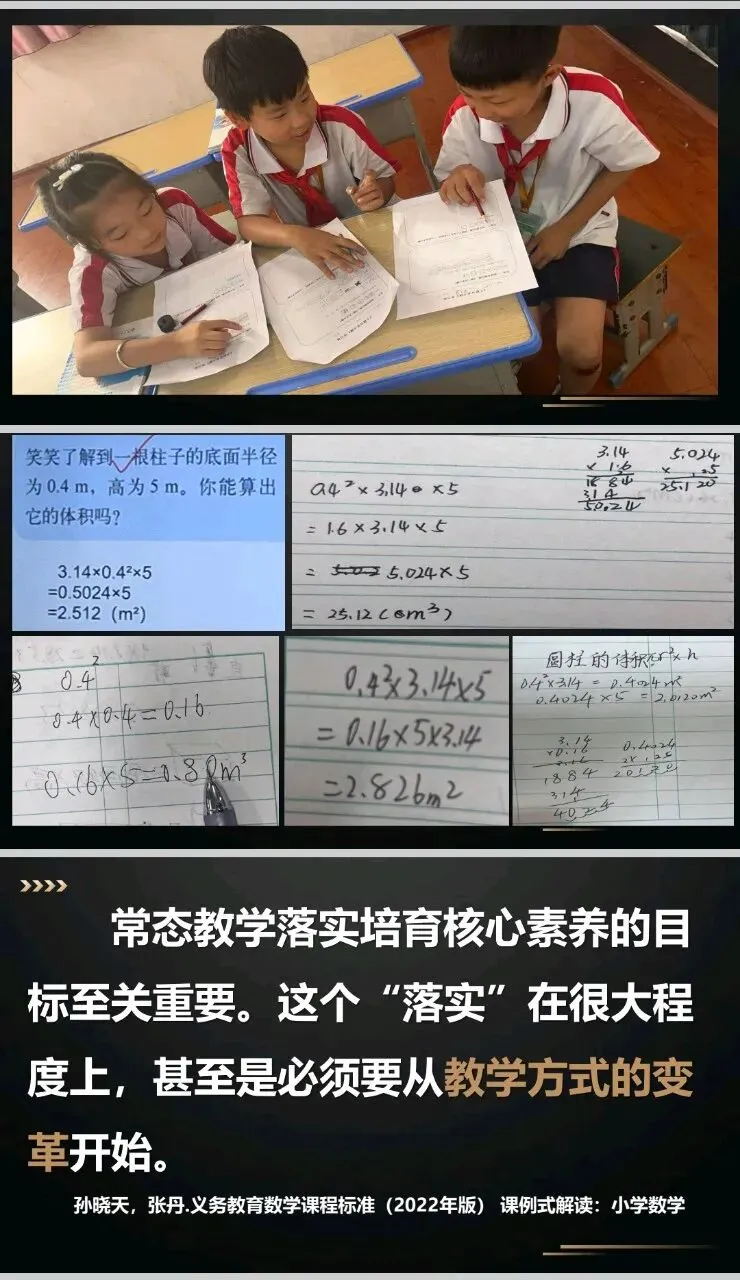 笑笑了解到一根柱子的底面半径
为 0.4 m，高为 5 m。你能算出
它的体积吗？
3.14×0.4²×5
=0.5024×5
=2.512（m²）
0.4²×3.14×5
=1.6×3.14×5
=5.024×5
=25.12(m³)
3.14
×1.6
1884
314
50.24
5.024
25.120
0.4²
0.4×0.4=0.16
0.16×5=0.80m³
0.4²×3.14×5
=0.16×5×3.14
=2.826m²
圆柱的体积=r²×h
0.4²×3.14=0.4024m²
0.4024×5=2.0120m²
3.14
×0.16
1884
314
0.4024
常态教学落实培育核心素养的目
标至关重要。这个“落实”在很大程
度上，甚至是必须要从教学方式的变
革开始。
孙晓天，张丹.义务教育数学课程标准（2022年版） 课例式解读：小学数学